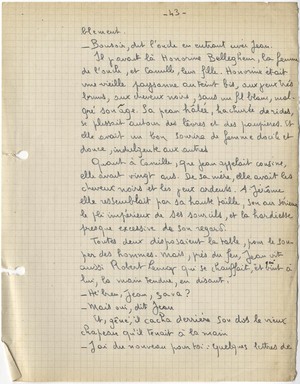 - 43 -
blement.
_ Bonsoir, dit l'oncle en entrant avec Jean.
Il y avait là Honorine Bellegheur, la femme
de l'oncle, et Camille, leur fille. Honorine était
une vieille paysanne au teint bis, aux yeux très
bruns, aux cheveux noirs, sans un fil blanc, mal-
gré son âge. Sa peau hâlée, hachurée de rides,
se plissait autour des lèvres et des paupières. Et
elle avait un bon sourire de femme docile et
douce, indulgente aux autres
Quant à Camille, que Jean appelait cousine,
elle avait vingt ans. De sa mère, elle avait les
cheveux noirs et les yeux ardents. A Jérôme
elle ressemblait par sa haute taille, son air sérieux
le pli impérieux de ses sourcils, et la hardiesse
presque excessive de son regard.
Toutes deux disposaient la table, pour le sou-
per des hommes. Mais, près du feu, Jean vit
aussi Robert qui se chauffait, et vint à
lui, la main tendue, en disant :
_ Hé bien, Jean, ça va ?
_ Mais oui, dit Jean
Et, gêné, il cacha derrière son dos le vieux
chapeau qu'il tenait à la main
_ J'ai du nouveau pour toi : quelques lettres de